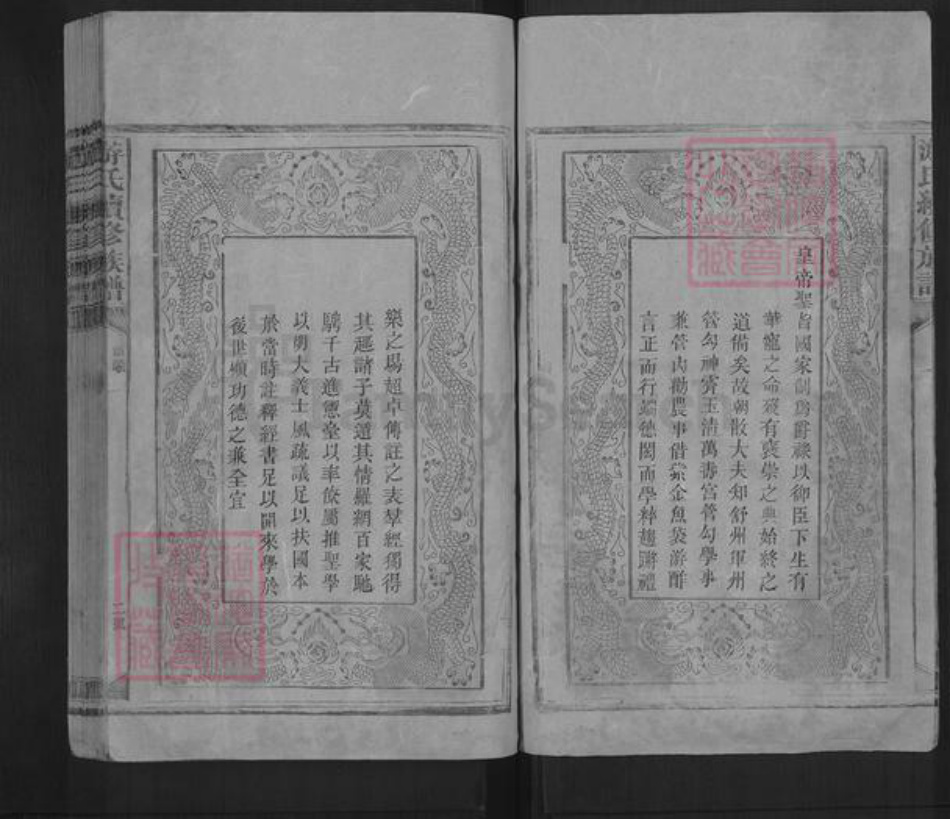 皇帝聖旨國家制為爵祿以御臣下生有
華寵之命歿有褒崇之典始終之
道備矣故朝散大夫知舒州軍州
管勾神霄玉清萬壽宮管勾學事
兼管內勸農事借紫金魚袋游酢
言正而行端德閎而學粹趨蹌禮
樂之場超卓傳註之表羣經獨得
其趣諸子莫遁其情羅網百家馳
騁千古進憲臺以率僚屬推聖學
以明大義士風疏議足以扶國本
於當時註釋經書足以開來學於
後世頌功德之兼全宜
游氏續修族譜
游氏續修族譜